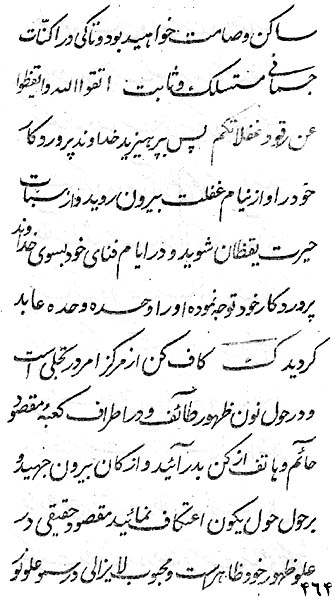 ساکن و صامت خواهید بود و تا کی در اکنّات
جسمانی متسلک و ثابت اتقوا الله و ایقظوا
عن رقود غفلاتکم پس بپرهیزید خداوند پروردکار
خود را و از نیام غفلت بیرون روید و از سبات
حیرت یقظان شوید و در ایام فنای خود بسوی خداوند
پروردکار خود توجه نموده او را وحده وحده عابد
کردید کاف کن از مرکز امر در تجلی است
و در حول نون ظهور طائف و در اطراف کعبهٔ مقصود
حائم و هاتف از کن بدر آئید و از کان بیرون جهید و
بر حول حول یکون اعتکاف نمائید مقصود حقیقی در
علو ظهور خود ظاهر است و محبوب لا یزالی در سمو علو نو
۴۶۴